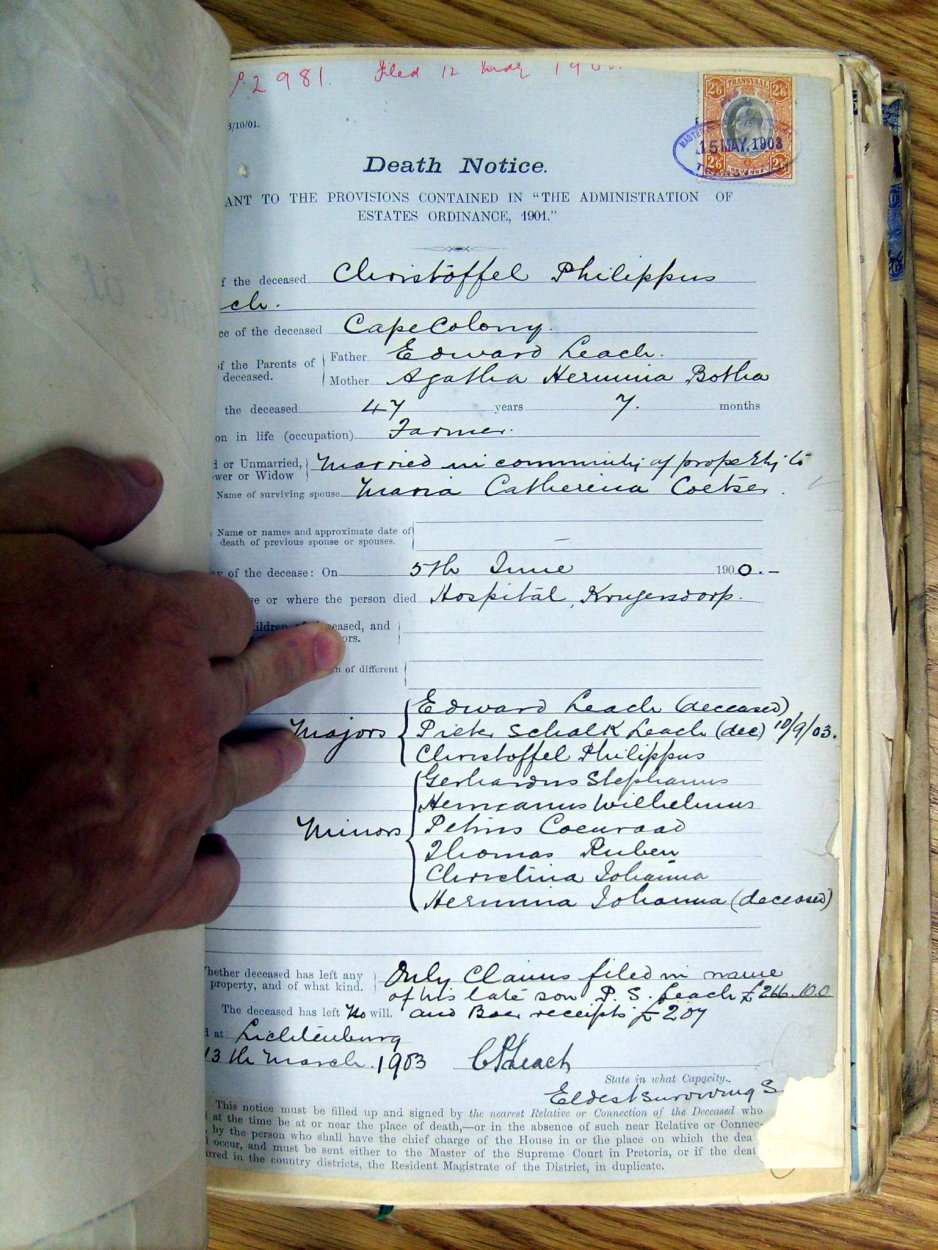 2981. Filed 12
3/10/01.
TRANSVAAL
2/6 2/6
15 MAY. 1903
2/6 2/6
Death Notice.
ANT TO THE PROVISIONS CONTAINED IN "THE ADMINISTRATION OF
ESTATES ORDINANCE, 1901."
f the deceased Christoffel Philippus
ch.
ce of the deceased Cape Colony.
of the Parents of Father Edward Leach.
deceased. Mother Agatha Hermina Botha
the deceased 47 years 7. months
on in life (occupation) Farmer.
d or Unmarried, Married in community of property to
wer or Widow
Name of surviving spouse Maria Catherena Coetser.
Name or names and approximate date of
death of previous spouse or spouses. —
y of the decease: On 5th June 1900.-
se or where the person died Hospital, Krugersdorp.
children of deceased, and
ors.
n of different
Edward Leach (deceased)
Majors Pieter Schalk Leach (dec) 10/9/03.
Christoffel Philippus
Gerhardus Stephanus
Hermanus Wilhelmus
Minors Petrus Coenraad
Thomas Ruben
Christina Johanna
Hermina Johanna (deceased)
hether deceased has left any Only Claims filed in name
property, and of what kind. of his late son P. S. Leach £266.10.0
The deceased has left No will. and Boer receipts £207
d at Lichtenburg
13th March. 1903 CPLeach
State in what Capacity.
Eldest surviving S
This notice must be filled up and signed by the nearest Relative or Connection of the Deceased who
at the time be at or near the place of death,—or in the absence of such near Relative or Connec-
by the person who shall have the chief charge of the House in or the place on which the dea
occur, and must be sent either to the Master of the Supreme Court in Pretoria, or if the deat
urred in the country districts, the Resident Magistrate of the District, in duplicate.